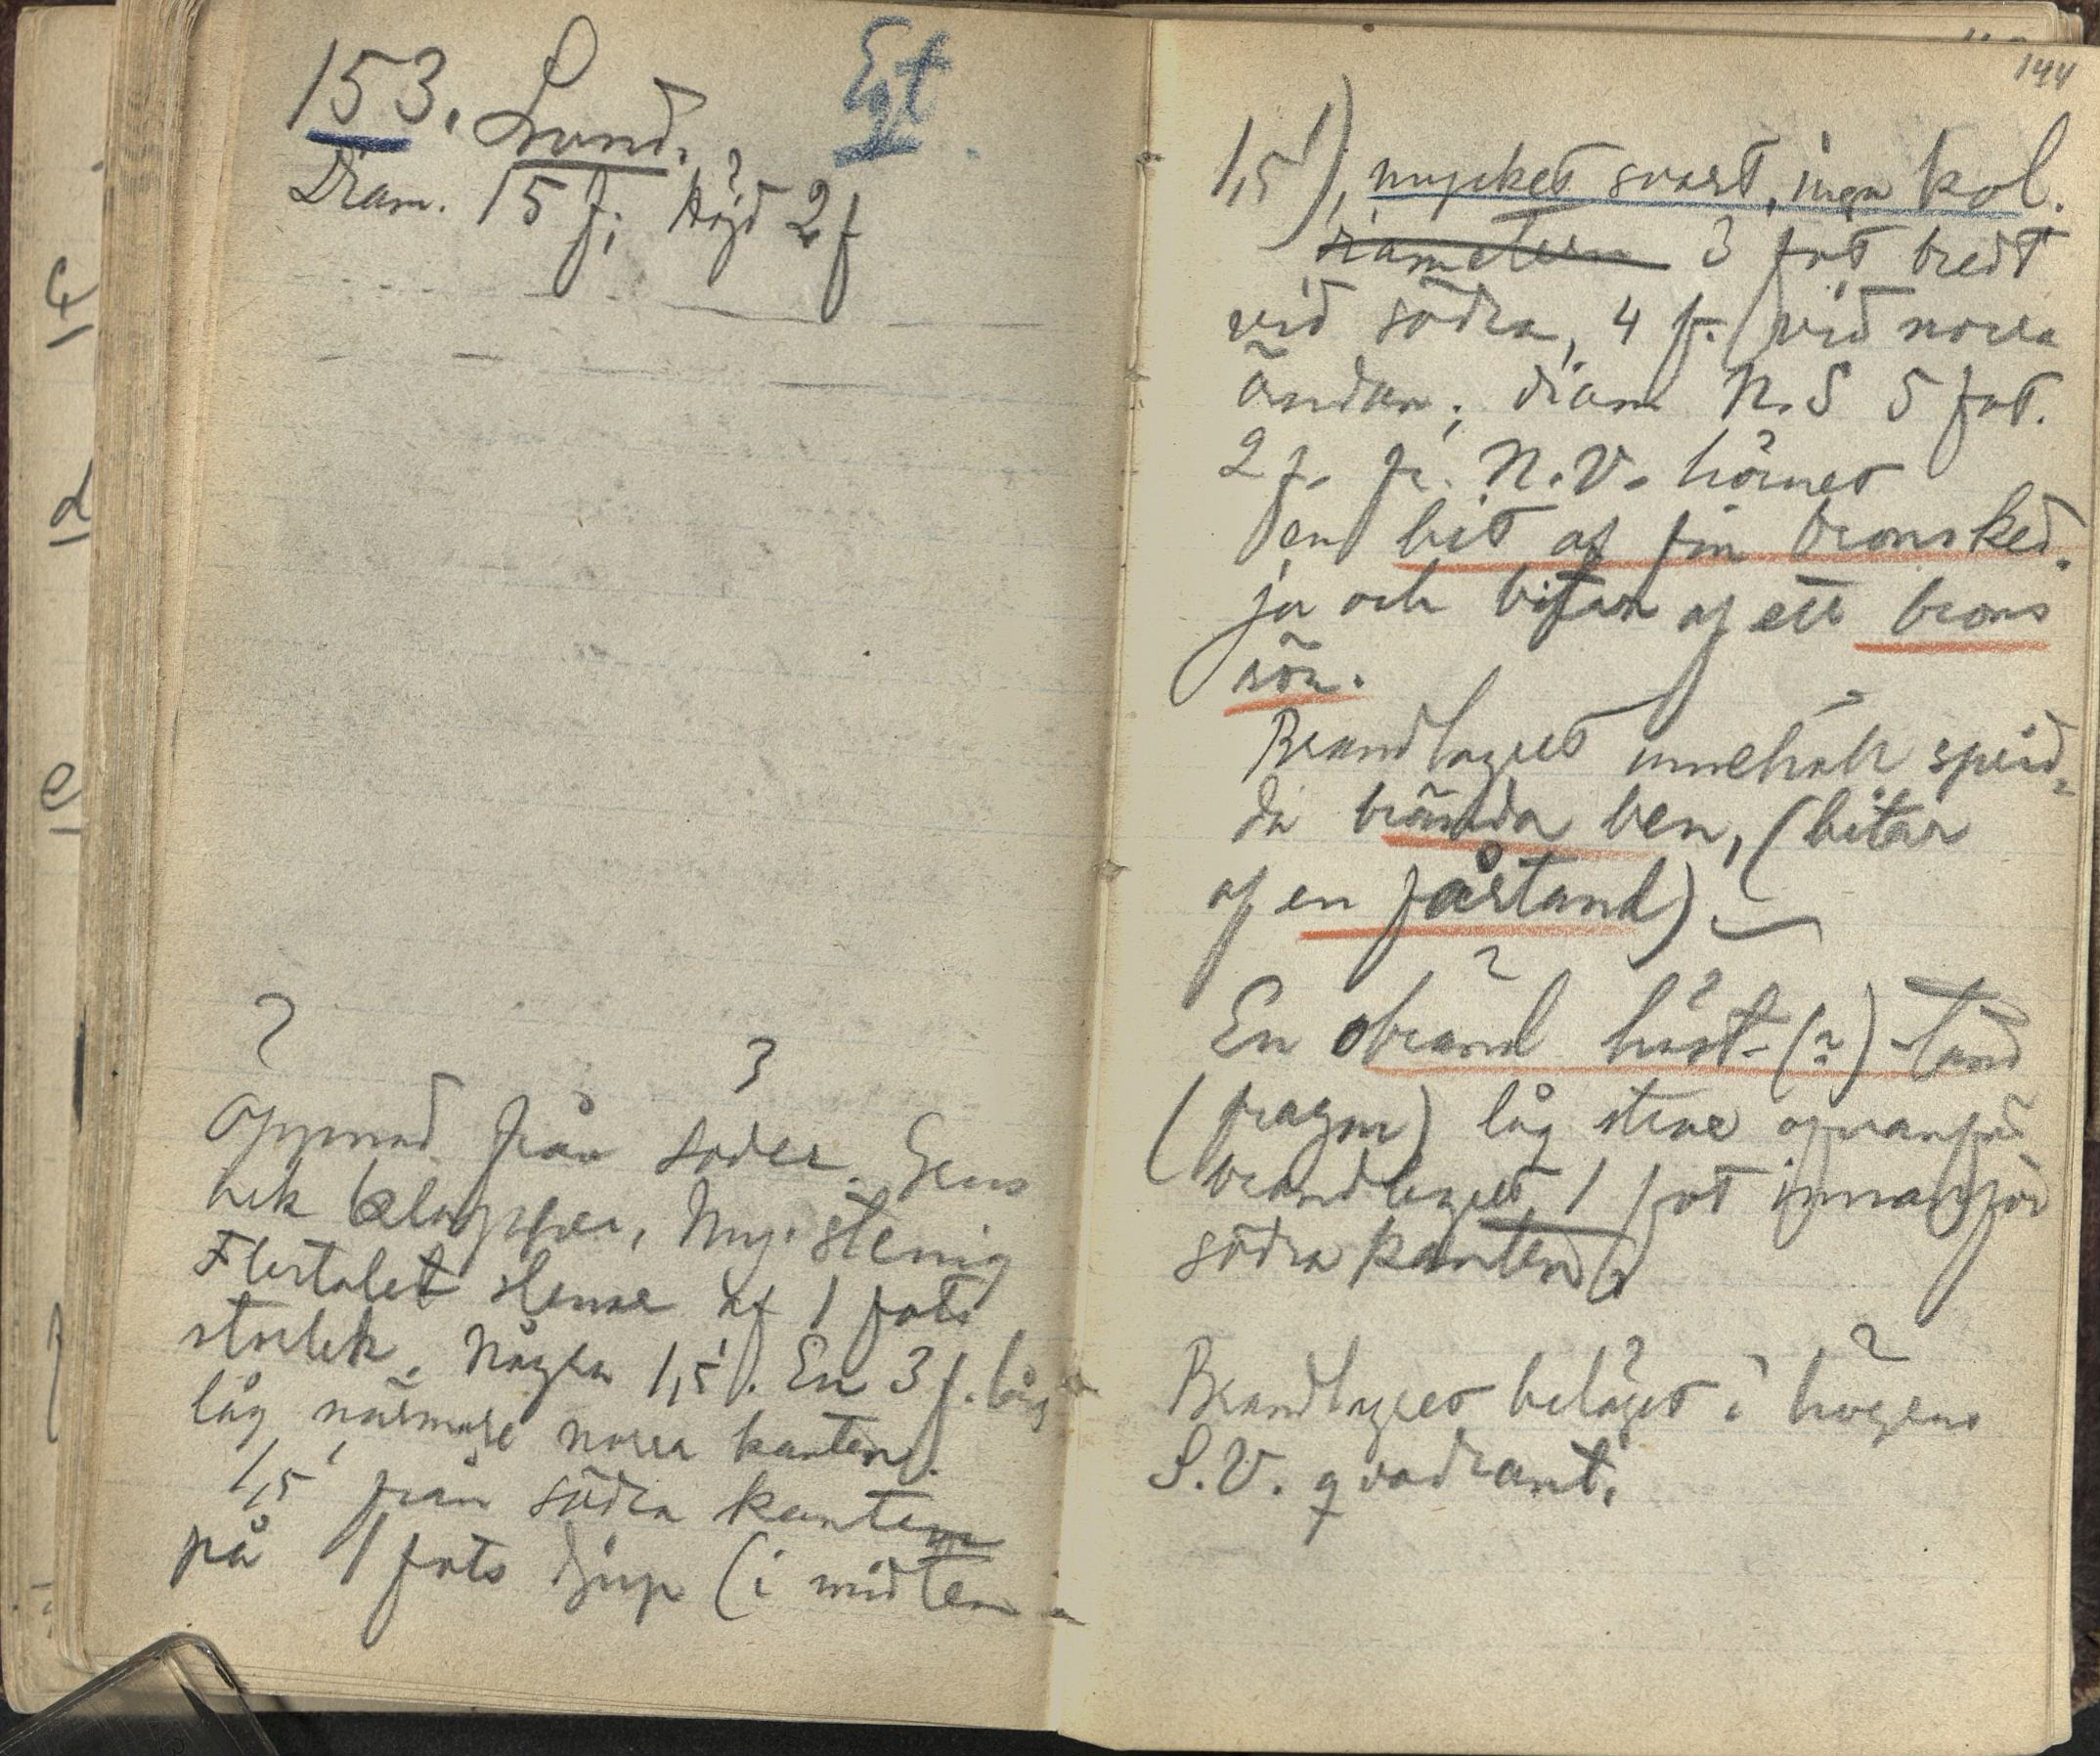 153. Lund.
Egt.
Diam. 15 f; Höjd 2 f
Öppnad från söder. Gens
bek klapper, My. stenig
Flertalet stenar af 1 fots
storlek. Några 1,5'. En 3 f. lång
låg närmare norra kanten.
1,5' från södra kanten
på 1 fots djup (i midten
144
1,5'), mycket svart, inga kol.
diametern 3 fot bredt
vid södra, 4 f. vid norra
ändan; diam N.S 5 fot.
2 f. fr. N.V. hörnet
en bit af fin bronsked
ja och bitar af ett brons
sör.
Brandlagret innehöll sprid
da brända ben, (bitar
af en fårtand)
En obränd häst-(?)-tand
(fragm) låg strax ofvanför
brandlagret 1 fot innanför
södra kanten.
Brandlagret beläget i högens
S.V. qvadrant.